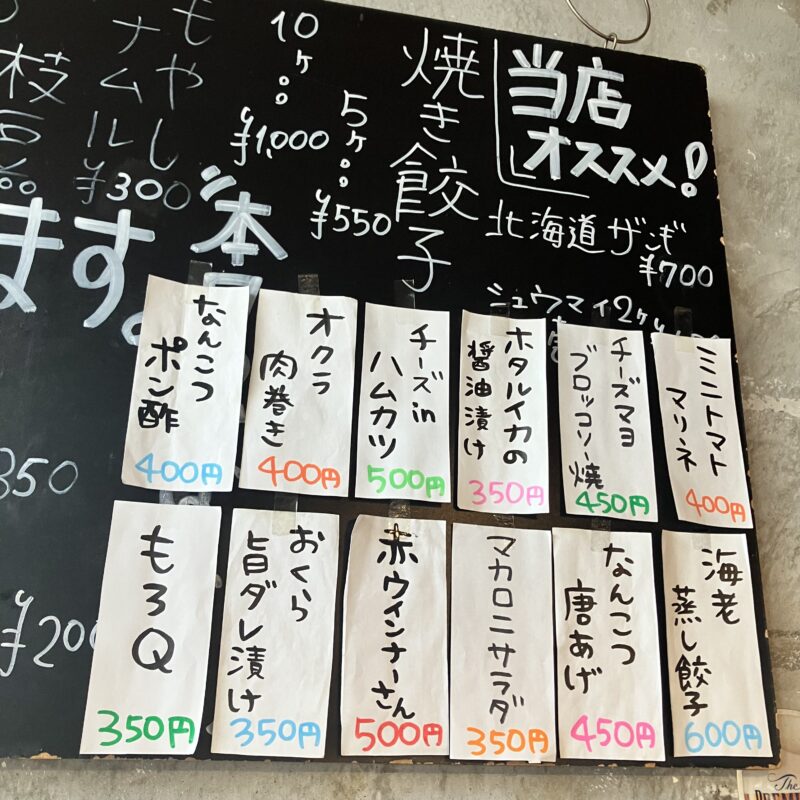 当店
オススメ!
北海道ザンギ
¥700
シュウマイ2ヶ
焼き餃子
5ヶ
¥550
10ヶ
¥1,000
もやし
ナムル
¥300
枝
ます。
本
350
¥200
ミニトマト
マリネ
400円
チーズマヨ
ブロッコリー焼
450円
ホタルイカの
醤油漬け
350円
チーズin
ハムカツ
500円
オクラ
肉巻き
400円
なんこつ
ポン酢
400円
海老
蒸し餃子
600円
なんこつ
唐あげ
450円
マカロニサラダ
350円
赤ウインナーさん
500円
おくら
旨ダレ漬け
350円
もろQ
350円
The